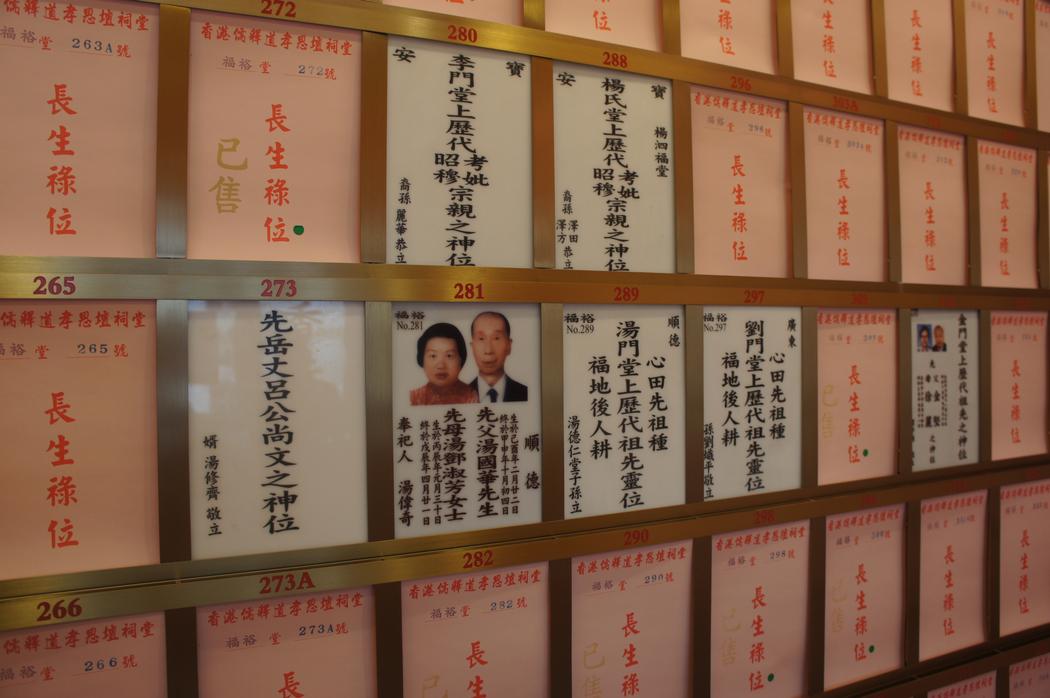 272
280
288
296
303A
儒釋道孝恩壇祠堂
福裕堂 263A號
長生祿位
香港儒釋道孝恩壇祠堂
福裕堂 272號
長生祿位
已售
寶
安
李門堂上歷代考妣昭穆宗親之神位
裔孫 麗華 恭立
寶
安
楊泗福堂
楊氏堂上歷代考妣昭穆宗親之神位
裔孫 澤田 澤方 恭立
香港儒釋道孝恩壇祠堂
福裕堂 296號
長生祿位
香港儒釋道孝恩壇祠堂
福裕堂 303A號
長生祿位
長生祿位
長生祿位
265
273
281
289
297
儒釋道孝恩壇祠堂
福裕堂 265號
長生祿位
先岳丈呂公尚文之神位
婿 湯修齊 敬立
福裕
No.281
順德
生於己酉年二月廿二日
終於甲申年十月初四日
先父湯國華先生
先母湯鄧淑芳女士
生於丙辰年元月三十日
終於戊辰年四月廿一日
奉祀人 湯偉奇
福裕
No.289
順德
心田先祖種
湯門堂上歷代祖先靈位
福地後人耕
湯德仁堂子孫立
福裕
No.297
廣東
心田先祖種
劉門堂上歷代祖先靈位
福地後人耕
香港儒釋道孝恩壇祠堂
長生祿位
已售
金門堂上歷代祖先之神位
長生祿位
266
273A
282
290
298
儒釋道孝恩壇祠堂
福裕堂 266號
香港儒釋道孝恩壇祠堂
福裕堂 273A號
長
香港儒釋道孝恩壇祠堂
福裕堂 282號
長生
已
香港儒釋道孝恩壇祠堂
福裕堂 290號
長生祿
已售
香港儒釋道孝恩壇祠堂
福裕堂 298號
長生祿位
已售
香港儒釋道孝恩壇祠堂
長生祿位
已售
長生祿位
長生祿